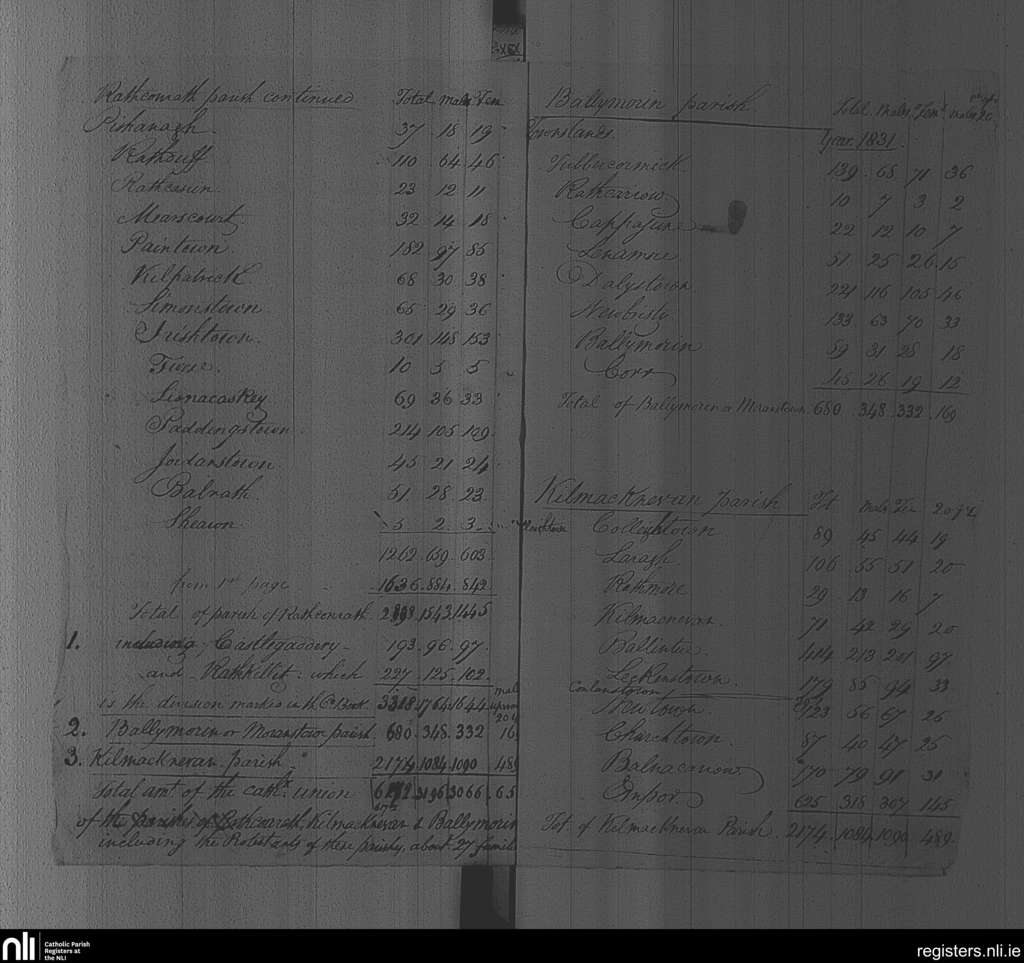 Rathconrath parish continued Total males Fem
Pishanagh 37 18 19
Rathduff 110 64 46
Rathcasun 23 12 11
Mearscourt 32 14 18
Paintown 182 97 85
Kilpatrick 68 30 38
Simonstown 65 29 36
Irishtown 301 148 153
Furse 10 5 5
Lisnacaskey 69 36 33
Paddingstown 214 105 109
Jordanstown 45 21 24
Balrath 51 28 23
Shewn 5 2 3
1262 659 603
from 1st page 1636 884 842
Total of parish of Rathconrath 1543 1445
1. including Castlegaddery 193 96 97
and Rathkellet: which 227 125 102
is the division marked in the Cn. Book 3318 1764 1644 male upwards 20 y
2. Ballymorin or Moranstown parish 680 348 332 16
3. Kilmacknevan parish 2174 1084 1090 489
Total amt of the cath. union 3196 3066 65
of the parishes of Rathconrath, Kilmacknevan & Ballymorin
including the Protestants of these parishes, about 27 famil
Ballymorin parish Total Males Fem males 20
Townslands Year 1831
Tubbercormick 139 68 71 36
Rathcariow 10 7 3 2
Cappagune 22 12 10 7
Lenamre 51 25 26 15
Dalystown 221 116 105 46
Newbristy 133 63 70 33
Ballymorin 59 31 28 18
Corr 45 26 19 12
Total of Ballymorin or Moranstown 680 348 332 160
Kilmacknevan parish Tt males Fe 20 yr
Colleghtown 89 45 44 19
Laragh 106 55 51 20
Rathmore 29 13 16 7
Kilmacnevan 71 42 29 20
Ballintue 414 213 201 97
Leskinstown 179 85 94 33
Conlanstown
Newtown 123 56 67 26
Churchtown 87 40 47 25
Balnacarrow 170 79 91 31
Empor 625 318 307 145
Tot. of Kilmacknevan Parish 2174 1084 1090 489
nli Catholic Parish
Registers at
the NLI
registers.nli.ie